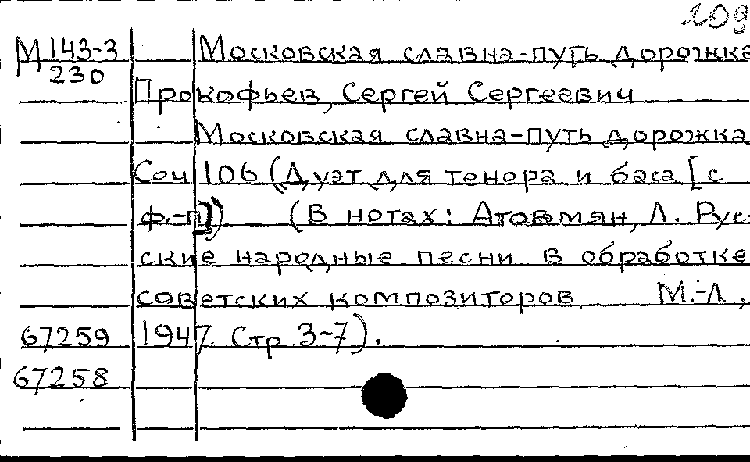 109
М 143-3 Московская славна-путь дорожка
230
Прокофьев, Сергей Сергеевич
Московская славна-путь дорожка
Соч 106 (Дуэт для тенора и баса [с
ф.-п]) (В нотах: Атовмян, Л. Рус-
ские народные песни в обработке
советских композиторов М.-Л,
67259 1947 Стр 3-7).
67258